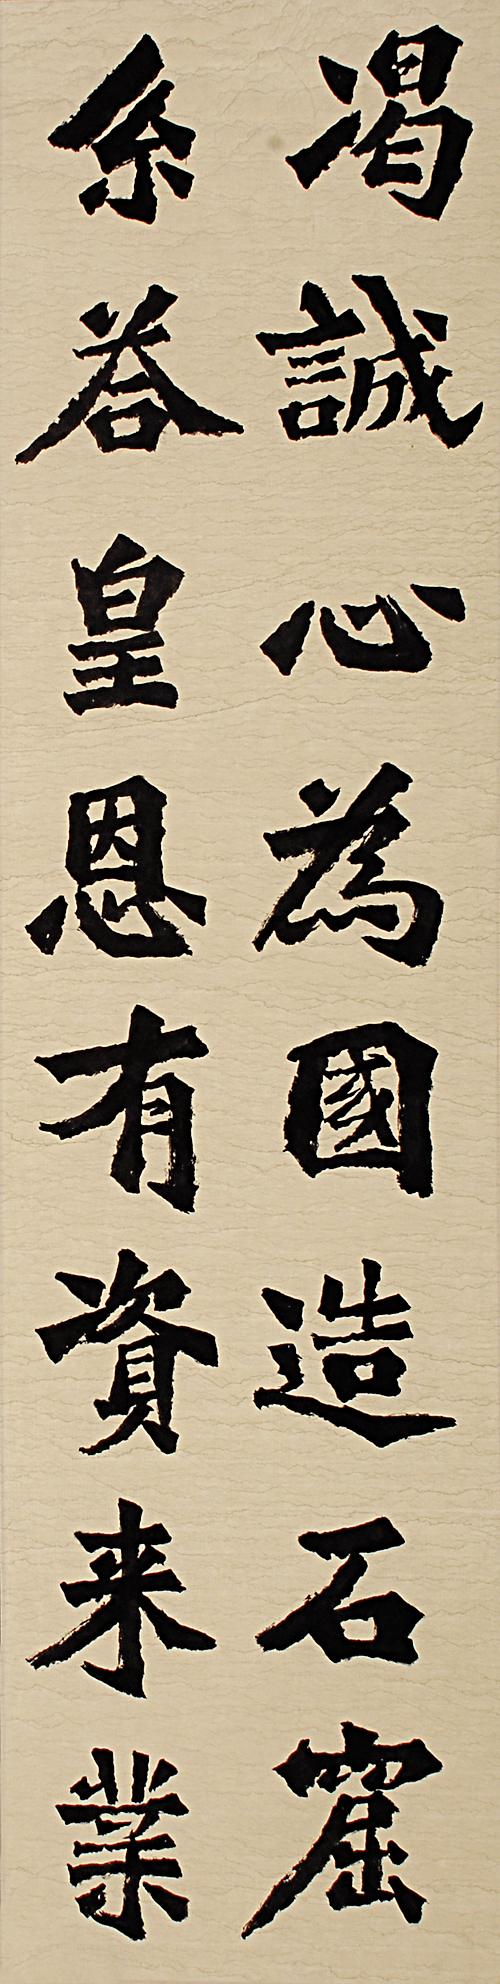 渴誠心為國造石窟
系答皇恩有資来業